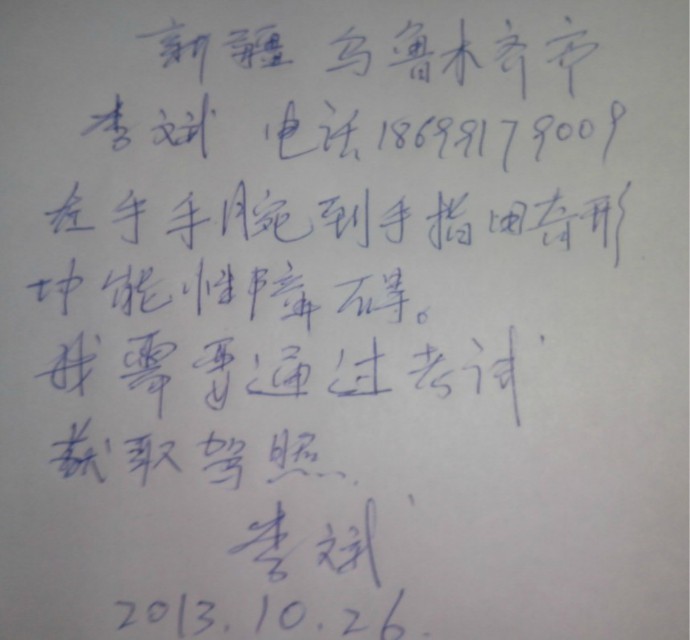 新疆 乌鲁木齐市
李斌 电话18699179009
左手手腕到手指畸形
功能性障碍。
我需要通过考试
获取驾照
李斌
2013.10.26.